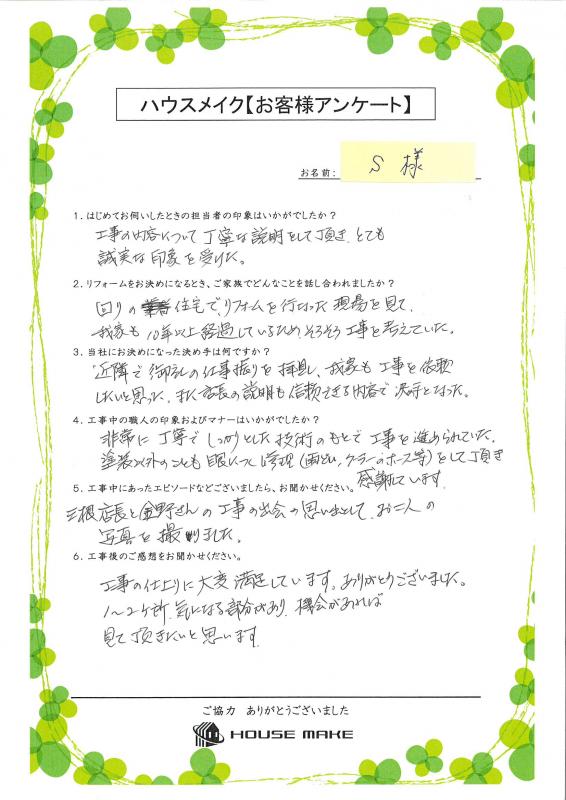 ハウスメイク【お客様アンケート】
お名前: S 様
1. はじめてお伺いしたときの担当者の印象はいかがでしたか？
工事の内容について丁寧な説明をして頂き、とても
誠実な印象を受けた。
2. リフォームをお決めになるとき、ご家族でどんなことを話し合われましたか？
回りの住宅で、リフォームを行なった現場を見て、
我家も10年以上経過しているため、そろそろ工事を考えていた。
3. 当社にお決めになった決め手は何ですか？
近隣で御社の仕事振りを拝見し、我家も工事を依頼
したいと思った。また店長の説明も信頼できる内容で決め手となった。
4. 工事中の職人の印象およびマナーはいかがでしたか？
非常に丁寧でしっかりとした技術のもとで工事を進められていた。
塗装以外のことも目につく修理(雨どい、クーラーのホース等)をして頂き
感謝しています。
5. 工事中にあったエピソードなどございましたら、お聞かせください。
三根店長と金野さんの工事の出会の思い出として、お二人の
写真を撮りました。
6. 工事後のご感想をお聞かせください。
工事の仕上りに大変満足しています。ありがとうございました。
1〜2ヶ所、気になる部分があり、機会があれば
見て頂きたいと思います。
ご協力 ありがとうございました
HOUSE MAKE